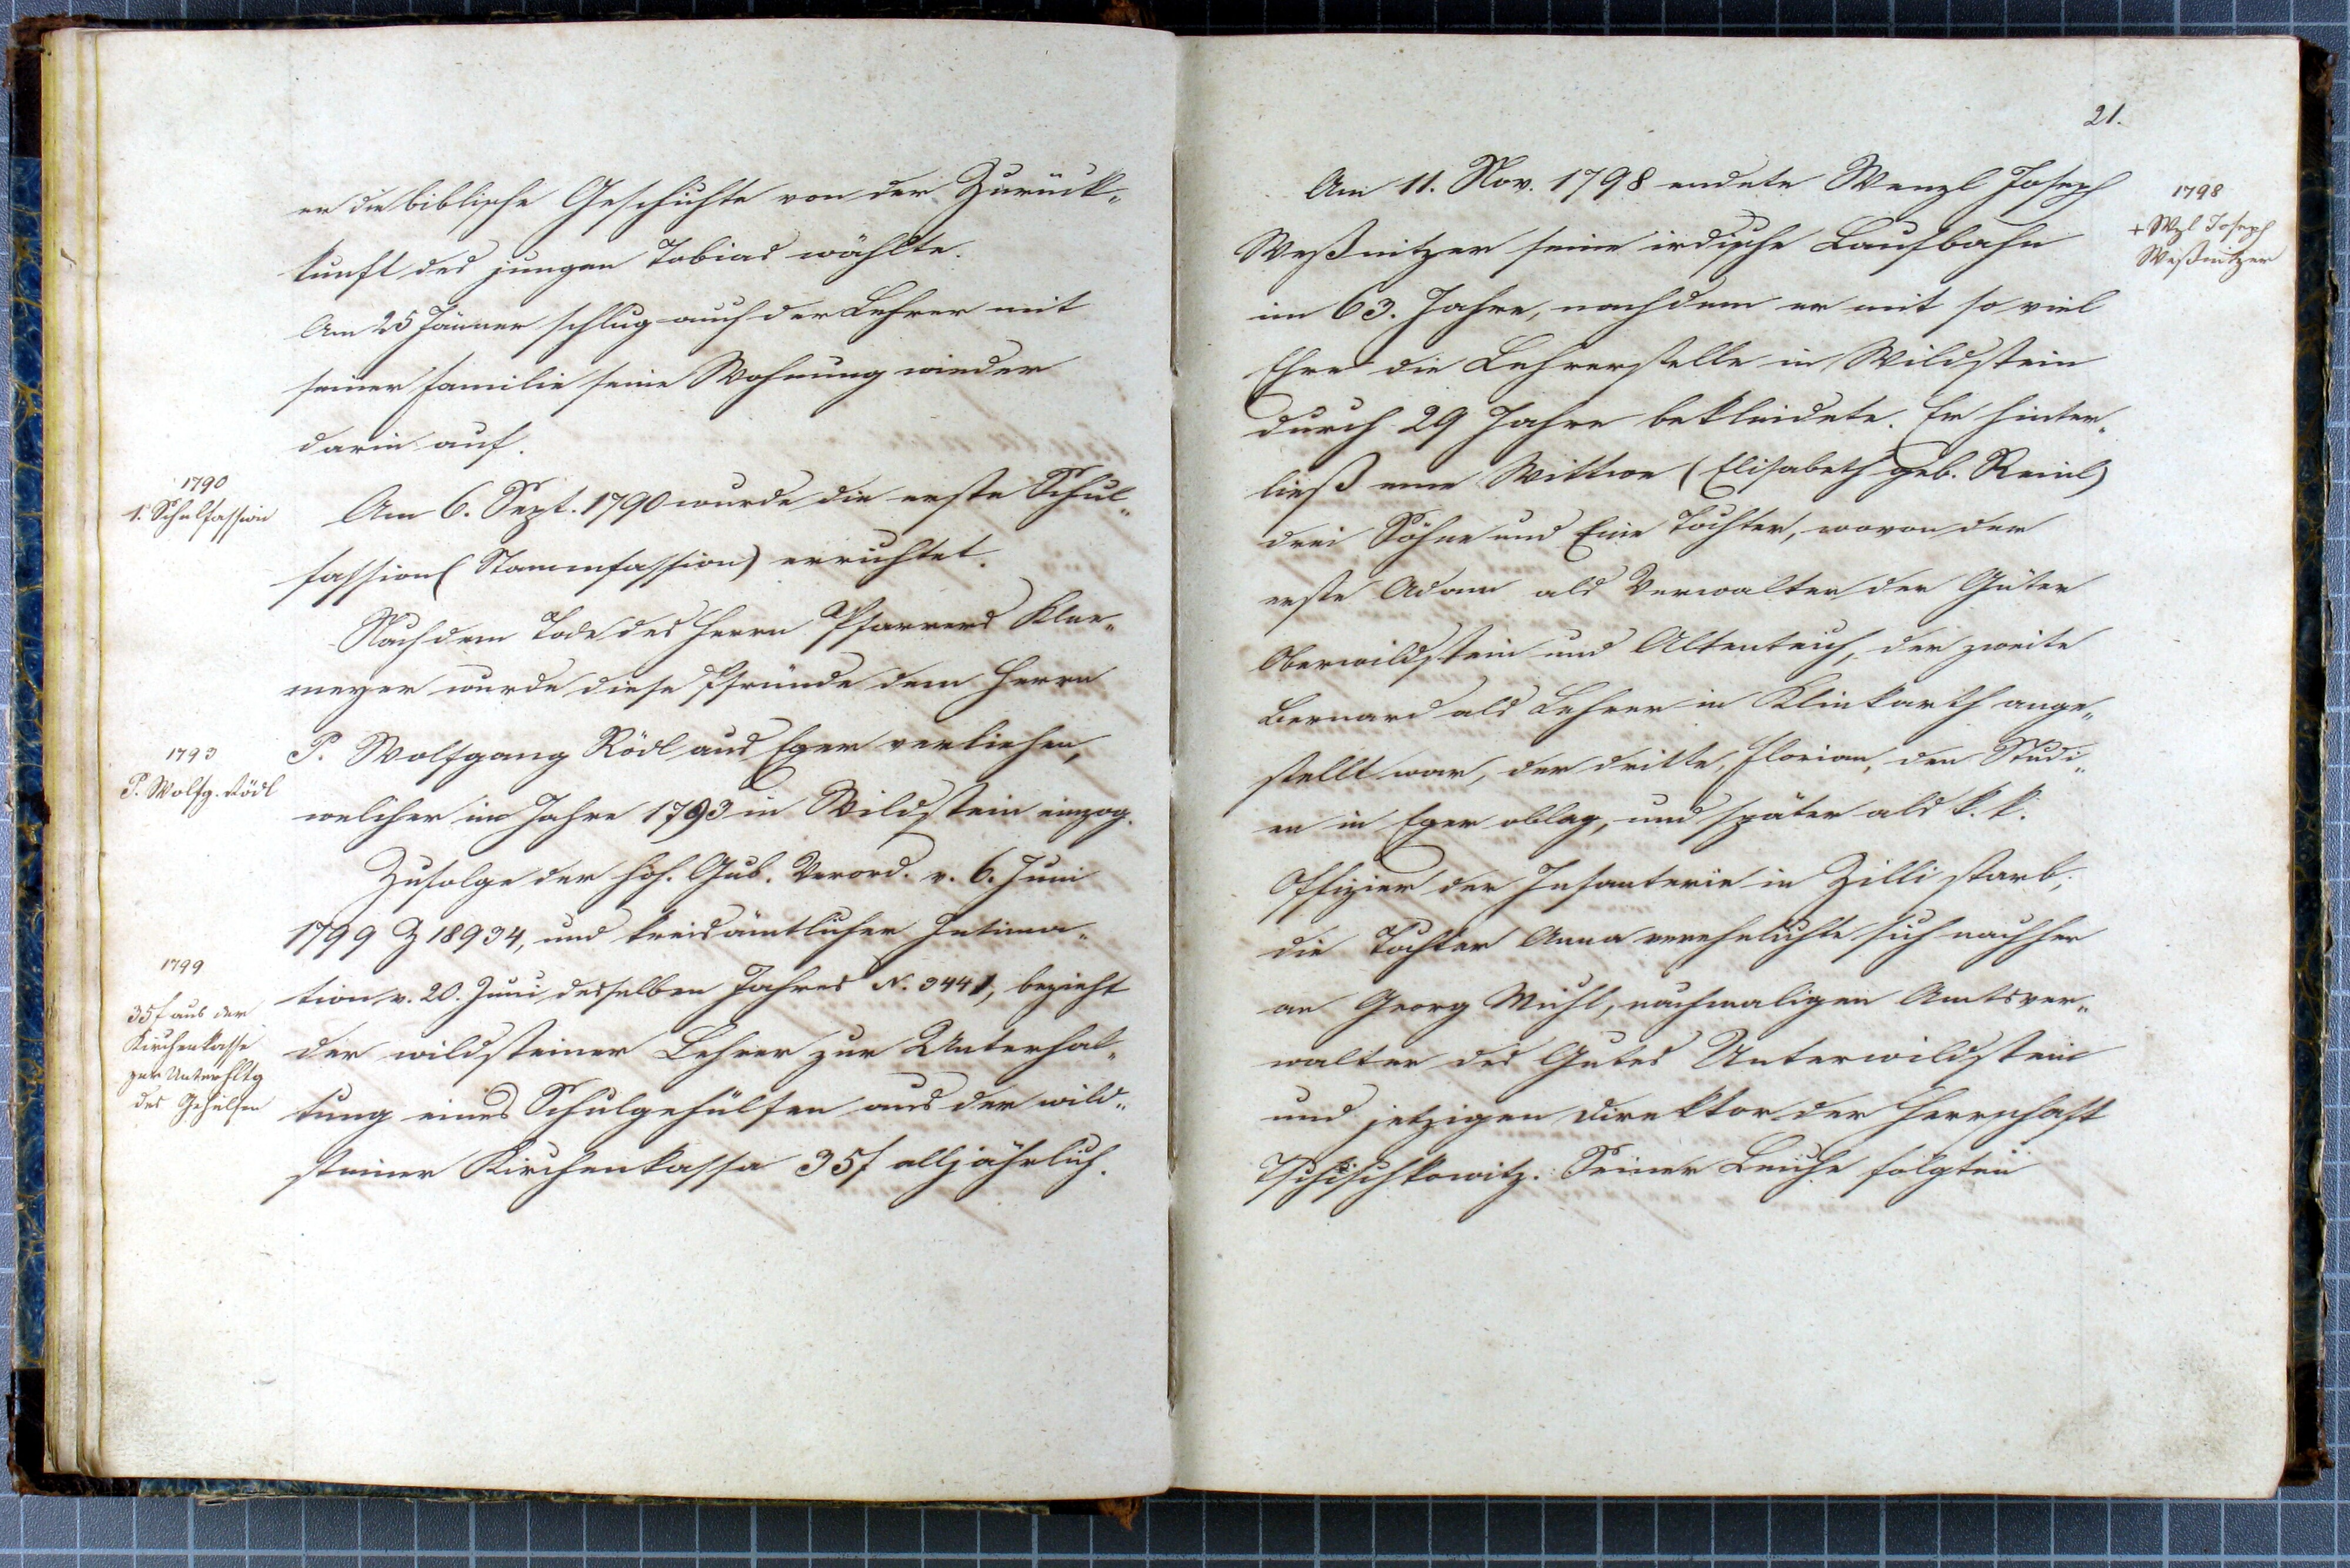 er die biblische Geschichte von der Zurück„
kunft des jungen Tobias wählte.
Am 25 Jänner schlug auch der Lehrer mit
seiner Familie seine Wohnung wieder
darin auf.
1790
1. Schulfassion
Am 6. Sept. 1790 wurde die erste Schul„
fassion (Stammfassion) errichtet.
Nach dem Tode des Herrn Pfarrers Klee„
meyer wurde diese Pfründe dem Herrn
1793
P. Wolfg. Rödl
P. Wolfgang Rödl aus Eger verliehen,
welcher im Jahre 1793 in Wildstein einzog.
Zufolge der hoh. Gub. Verord. v. 6. Juni
1799 Z 18934, und kreisämtlicher Intima„
1799
35 f aus der
Kirchenkasse
zur Unterhltg
des Gehülfen
tion v. 20. Juni desselben Jahres N. 3441, bezieht
der wildsteiner Lehrer zur Unterhal„
tung eines Schulgehülfen aus der wild„
steiner Kirchenkassa 35 f alljährlich.
21.
Am 11. Nov. 1798 endete Wenzl Joseph
1798
+ Wzl Joseph
Weßnitzer
Weßnitzer seine irdische Laufbahn
im 63. Jahre, nachdem er mit so viel
Ehre die Lehrerstelle in Wildstein
durch 29 Jahre bekleidete. Er hinter„
ließ eine Wittwe (Elisabeth geb. Reinl)
drei Söhne und Eine Tochter, wovon der
erste Adam als Verwalter der Güter
Oberwildstein und Altenteich, der zweite
Bernard als Lehrer in Klinkarth ange„
stellt war, der dritte, Florian, den Studi„
en in Eger oblag, und später als k. k.
Offizier der Infanterie in Zilli starb;
die Tochter Anna verehelichte sich nachher
an Georg Mühl, nachmaligen Amtsver„
walter des Gutes Unterwildstein
und jetzigen Direktor der Herrschaft
Tschischkowitz. Seiner Leiche folgten